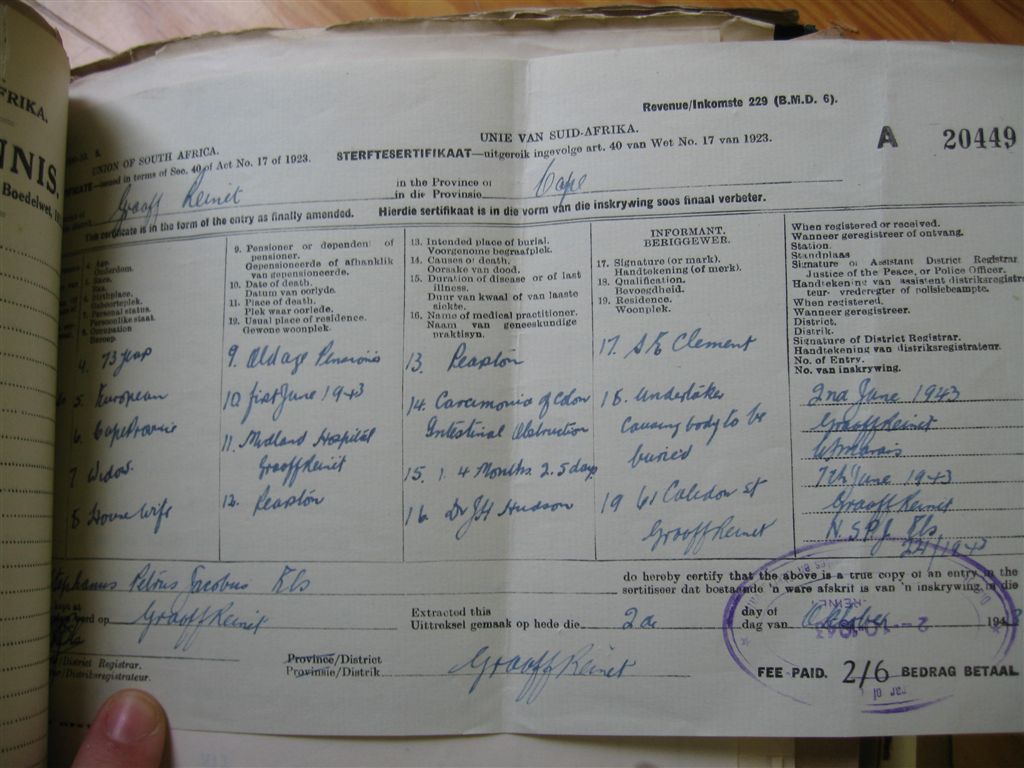 FRIKA.
NNIS.
Boedelwet, 19
Revenue/Inkomste 229 (B.M.D. 6).
UNION OF SOUTH AFRICA.
UNIE VAN SUID-AFRIKA.
A 20449
issued in terms of Sec. 40 of Act No. 17 of 1923.
STERFTESERTIFIKAAT—uitgereik ingevolge art. 40 van Wet No. 17 van 1923.
Graaff Reinet
in the Province of
in die Provinsie
Cape
This certificate is in the form of the entry as finally amended.
Hierdie sertifikaat is in die vorm van die inskrywing soos finaal verbeter.
4. Age.
Ouderdom.
5. Race.
Ras.
6. Birthplace.
Geboorteplek.
7. Personal status.
Persoonlike staat.
8. Occupation
Beroep.
4. 73 years
5. European
6. Cape Province
7 Widow
8. House Wife
9. Pensioner or dependent of
pensioner.
Gepensioneerde of afhanklik
van gepensioneerde.
10. Date of death.
Datum van oorlyde.
11. Place of death.
Plek waar oorlede.
12. Usual place of residence.
Gewone woonplek.
9. Old age Pensions
10 first June 1943
11. Midland Hospital
Graaff Reinet
12. Pearston
13. Intended place of burial.
Voorgenome begraafplek.
14. Causes of death.
Oorsake van dood.
15. Duration of disease or of last
illness.
Duur van kwaal of van laaste
siekte.
16. Name of medical practitioner.
Naam van geneeskundige
praktisyn.
13. Pearston
14. Carcinomia of Colon
Intestinal Obstruction
15. 1. 4 Months. 2. 5 days
16. Dr J H Hudson
INFORMANT.
BERIGGEWER.
17. Signature (or mark).
Handtekening (of merk).
18. Qualification.
Bevoegdheid.
19. Residence.
Woonplek.
17. S E Clement
18. Undertaker
Causing body to be
buried
19 61 Caledon st
Graaff Reinet
When registered or received.
Wanneer geregistreer of ontvang.
Station.
Standplaas
Signature of Assistant District Registrar
Justice of the Peace, or Police Officer.
Handtekening van assistent distriksregist
teur. vrederegter of polisiebeampte.
When registered.
Wanneer geregistreer.
District.
Distrik.
Signature of District Registrar.
Handtekening van distriksregistrateur.
No. of Entry.
No. van inskrywing.
2nd June 1943
Graaff Reinet
7th June 1943
Graaff Reinet
N.S.P.J. Els
221/1943
Stephanus Petrus Jacobus Els
do hereby certify that the above is a true copy of an entry in the
sertifiseer dat bostaande 'n ware afskrif is van 'n inskrywing in die
Graaff Reinet
Extracted this
Uittreksel gemaak op hede die
day of
dag van
October
194
District Registrar.
Distriksregistrateur.
Province/District
Provinsie/Distrik
Graaff Reinet
FEE PAID. 2/6 BEDRAG BETAAL